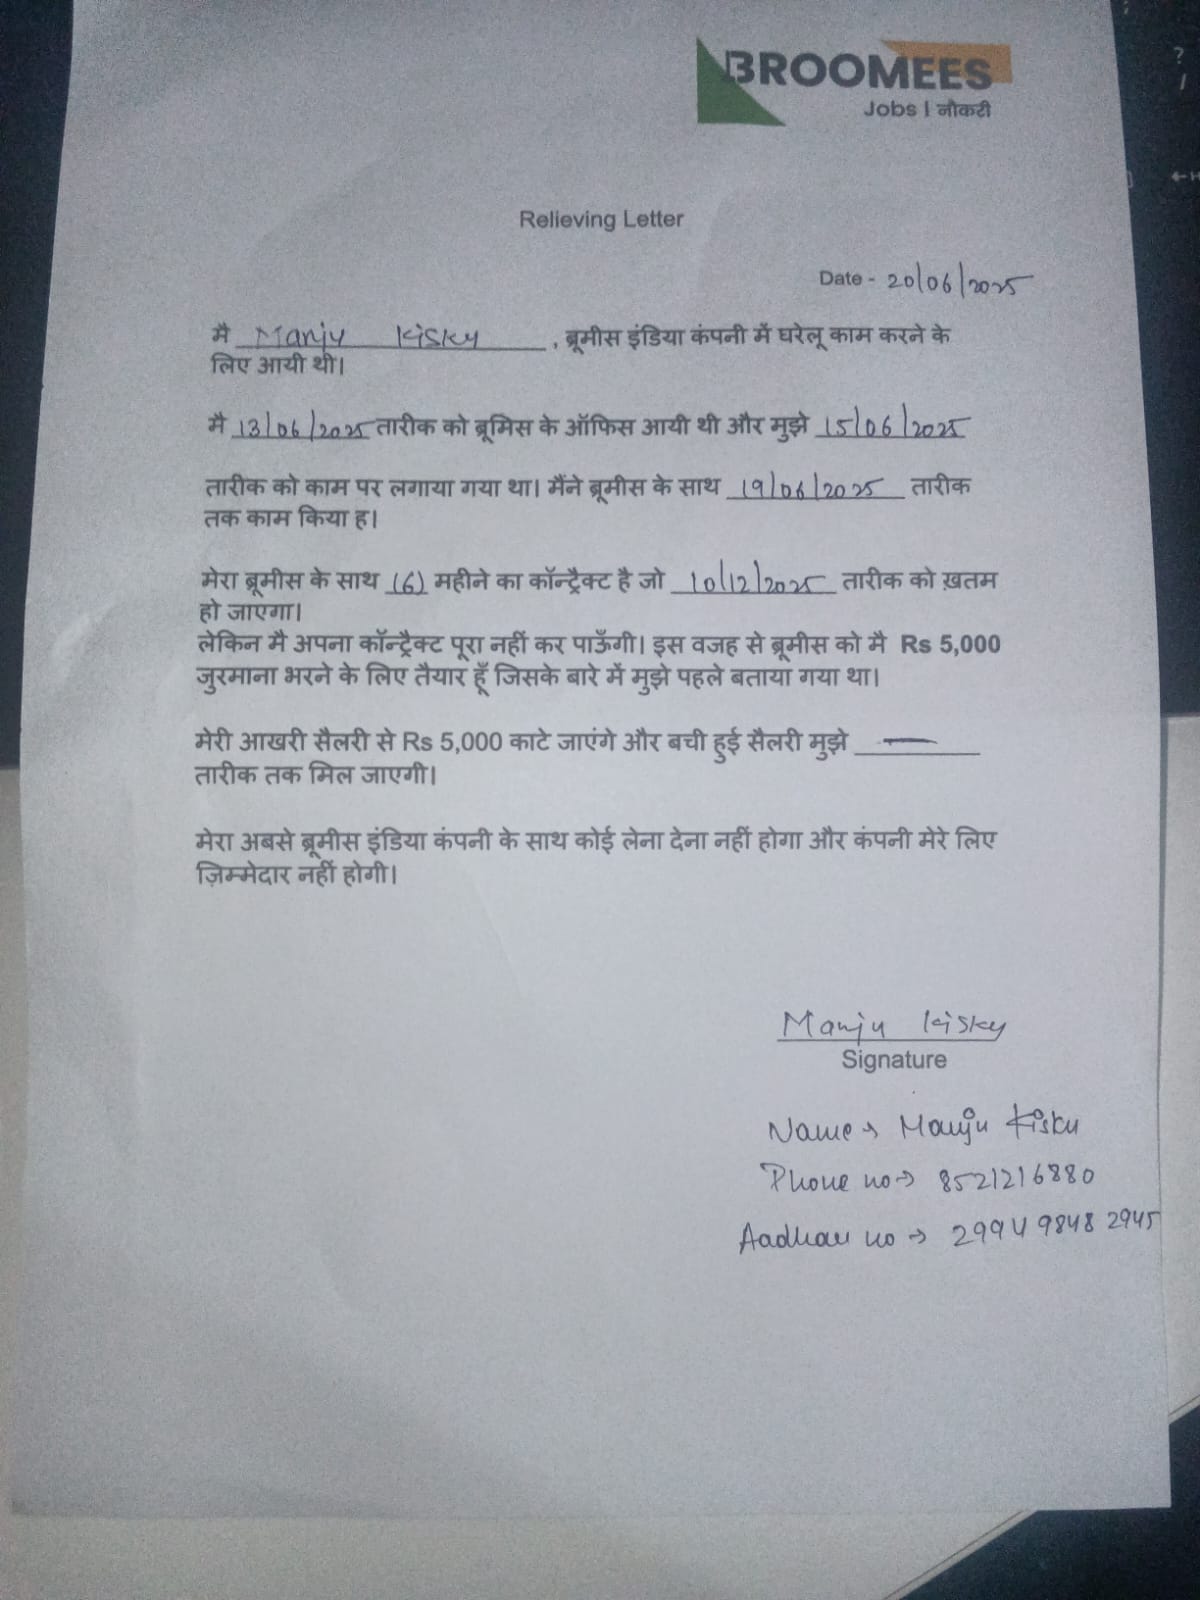 BROOMEES
Jobs | नौकरी
Relieving Letter
Date - 20/06/2025
मै Manju Kisky , ब्रूमीस इंडिया कंपनी में घरेलू काम करने के
लिए आयी थी।
मै 13/06/2025 तारीक को ब्रूमिस के ऑफिस आयी थी और मुझे 15/06/2025
तारीक को काम पर लगाया गया था। मैंने ब्रूमीस के साथ 19/06/2025 तारीक
तक काम किया ह।
मेरा ब्रूमीस के साथ (6) महीने का कॉन्ट्रैक्ट है जो 10/12/2025 तारीक को ख़तम
हो जाएगा।
लेकिन मै अपना कॉन्ट्रैक्ट पूरा नहीं कर पाऊँगी। इस वजह से ब्रूमीस को मै Rs 5,000
जुरमाना भरने के लिए तैयार हूँ जिसके बारे में मुझे पहले बताया गया था।
मेरी आखरी सैलरी से Rs 5,000 काटे जाएंगे और बची हुई सैलरी मुझे —
तारीक तक मिल जाएगी।
मेरा अबसे ब्रूमीस इंडिया कंपनी के साथ कोई लेना देना नहीं होगा और कंपनी मेरे लिए
ज़िम्मेदार नहीं होगी।
Manju Kisky
Signature
Name → Manju Kisku
Phone no → 8521216880
Aadhar no → 2994 9848 2945